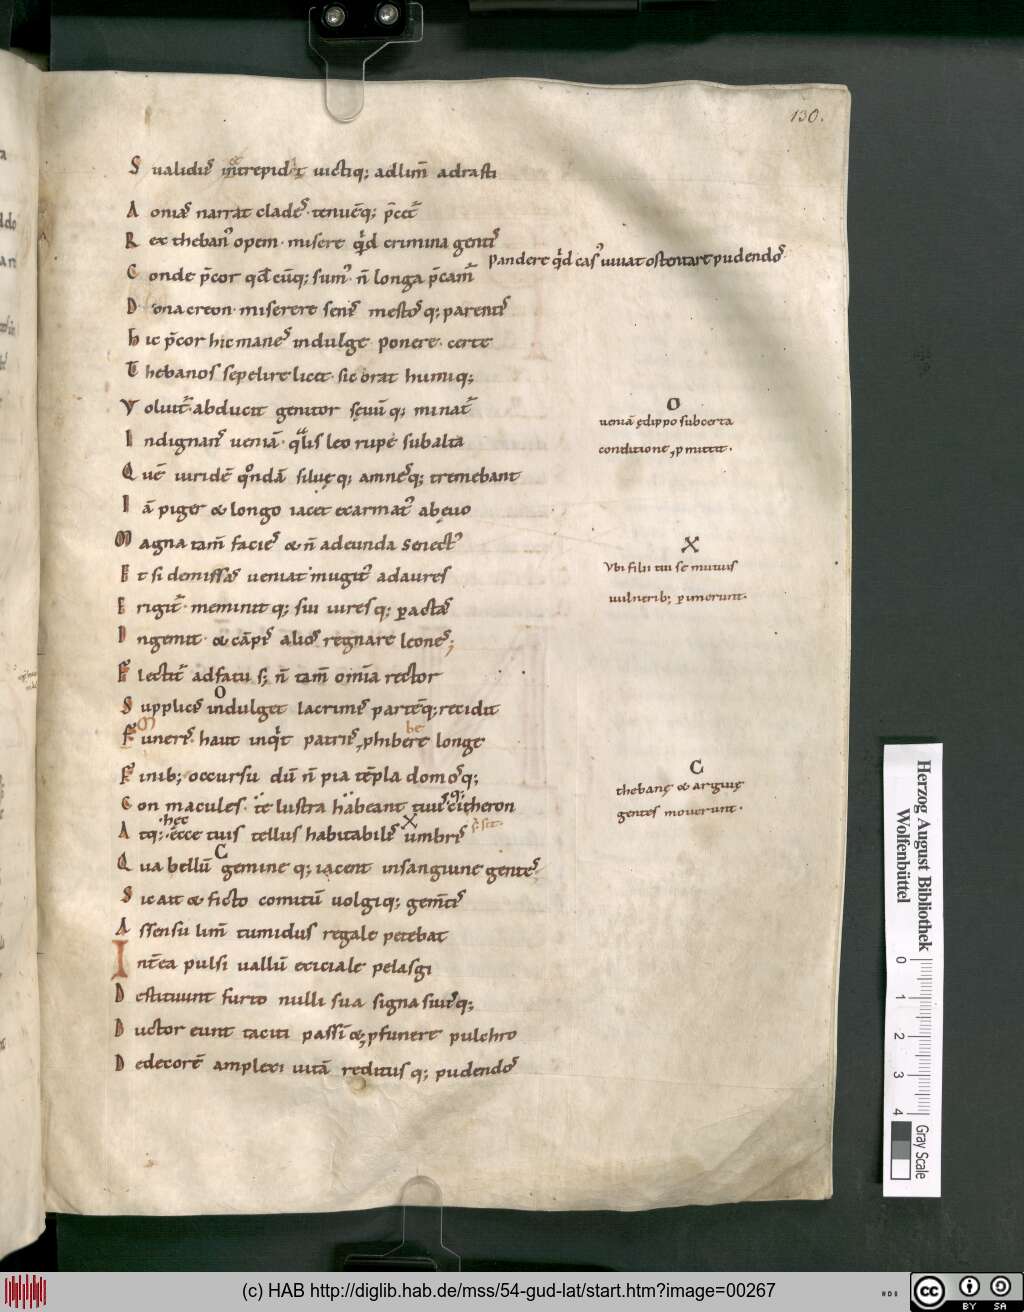 130.
S ualidis intrepidȩ uictiq; adlim̄ adrasti
A onias narrat clades tenuēq; p̄cat᷑
R ex theban᷒ opem misere quid crimina gentis
Pandere quid cas᷒ iuuat ostentare pudendos
C onde p̄cor qd̄cūq; sum᷒ n̄ longa p̄cam᷑
D ona creon miserere senis mestosq; parentis
h ic p̄cor hic manes indulge ponere certe
T hebanos sepelire licet sic orat humiq;
V oluit᷑ abducit genitor sęuūq; minat᷑
I ndignans ueniā qualis leo rupe sub alta
Q uē uiridē quondā siluęq; amnesq; tremebant
I ā piger & longo iacet exarmat᷒ ab ęuo
M agna tam̄ facies & n̄ adeunda senect᷒
E t si demissas ueniat mugit᷒ ad aures
E rigit᷑ meminitq; sui uiresq; peractas
I ngemit & cāpis alios regnare leones;
F lectit᷑ adfatu s; n̄ tam̄ omīa rector
S upplicis indulget lacrimis partēq; recidit
F uneris haut inquit patriis phibere longe
be
F inib; occursu dū n̄ pia tēpla domosq;
C on macules te lustra habeant tuus citheron
A tq; hec ecce tuis tellus habitabilis umbris
s̄ sit
Q ua bellū gemineq; iacent in sanguine gentes
S ic ait & ficto comitū uolgiq; gem̄tis
A ssensu lim̄ tumidus regale petebat
I nt̄ea pulsi uallū exciale pelasgi
D estituunt furto nulli sua signa suusq;
D uctor eunt taciti passī & p funere pulchro
D edecorē amplexi uitā reditusq; pudendos
O
ueniā ędippo sub certa
conditione p̄mittit.
X
Vbi filii tui se mutuis
uulnerib; perimerunt.
C
thebanę & argiuę
gentes mouerunt.
Herzog August Bibliothek
Wolfenbüttel
0 1 2 3 4
Gray Scale
(c) HAB http://diglib.hab.de/mss/54-gud-lat/start.htm?image=00267
HAB
cc BY SA